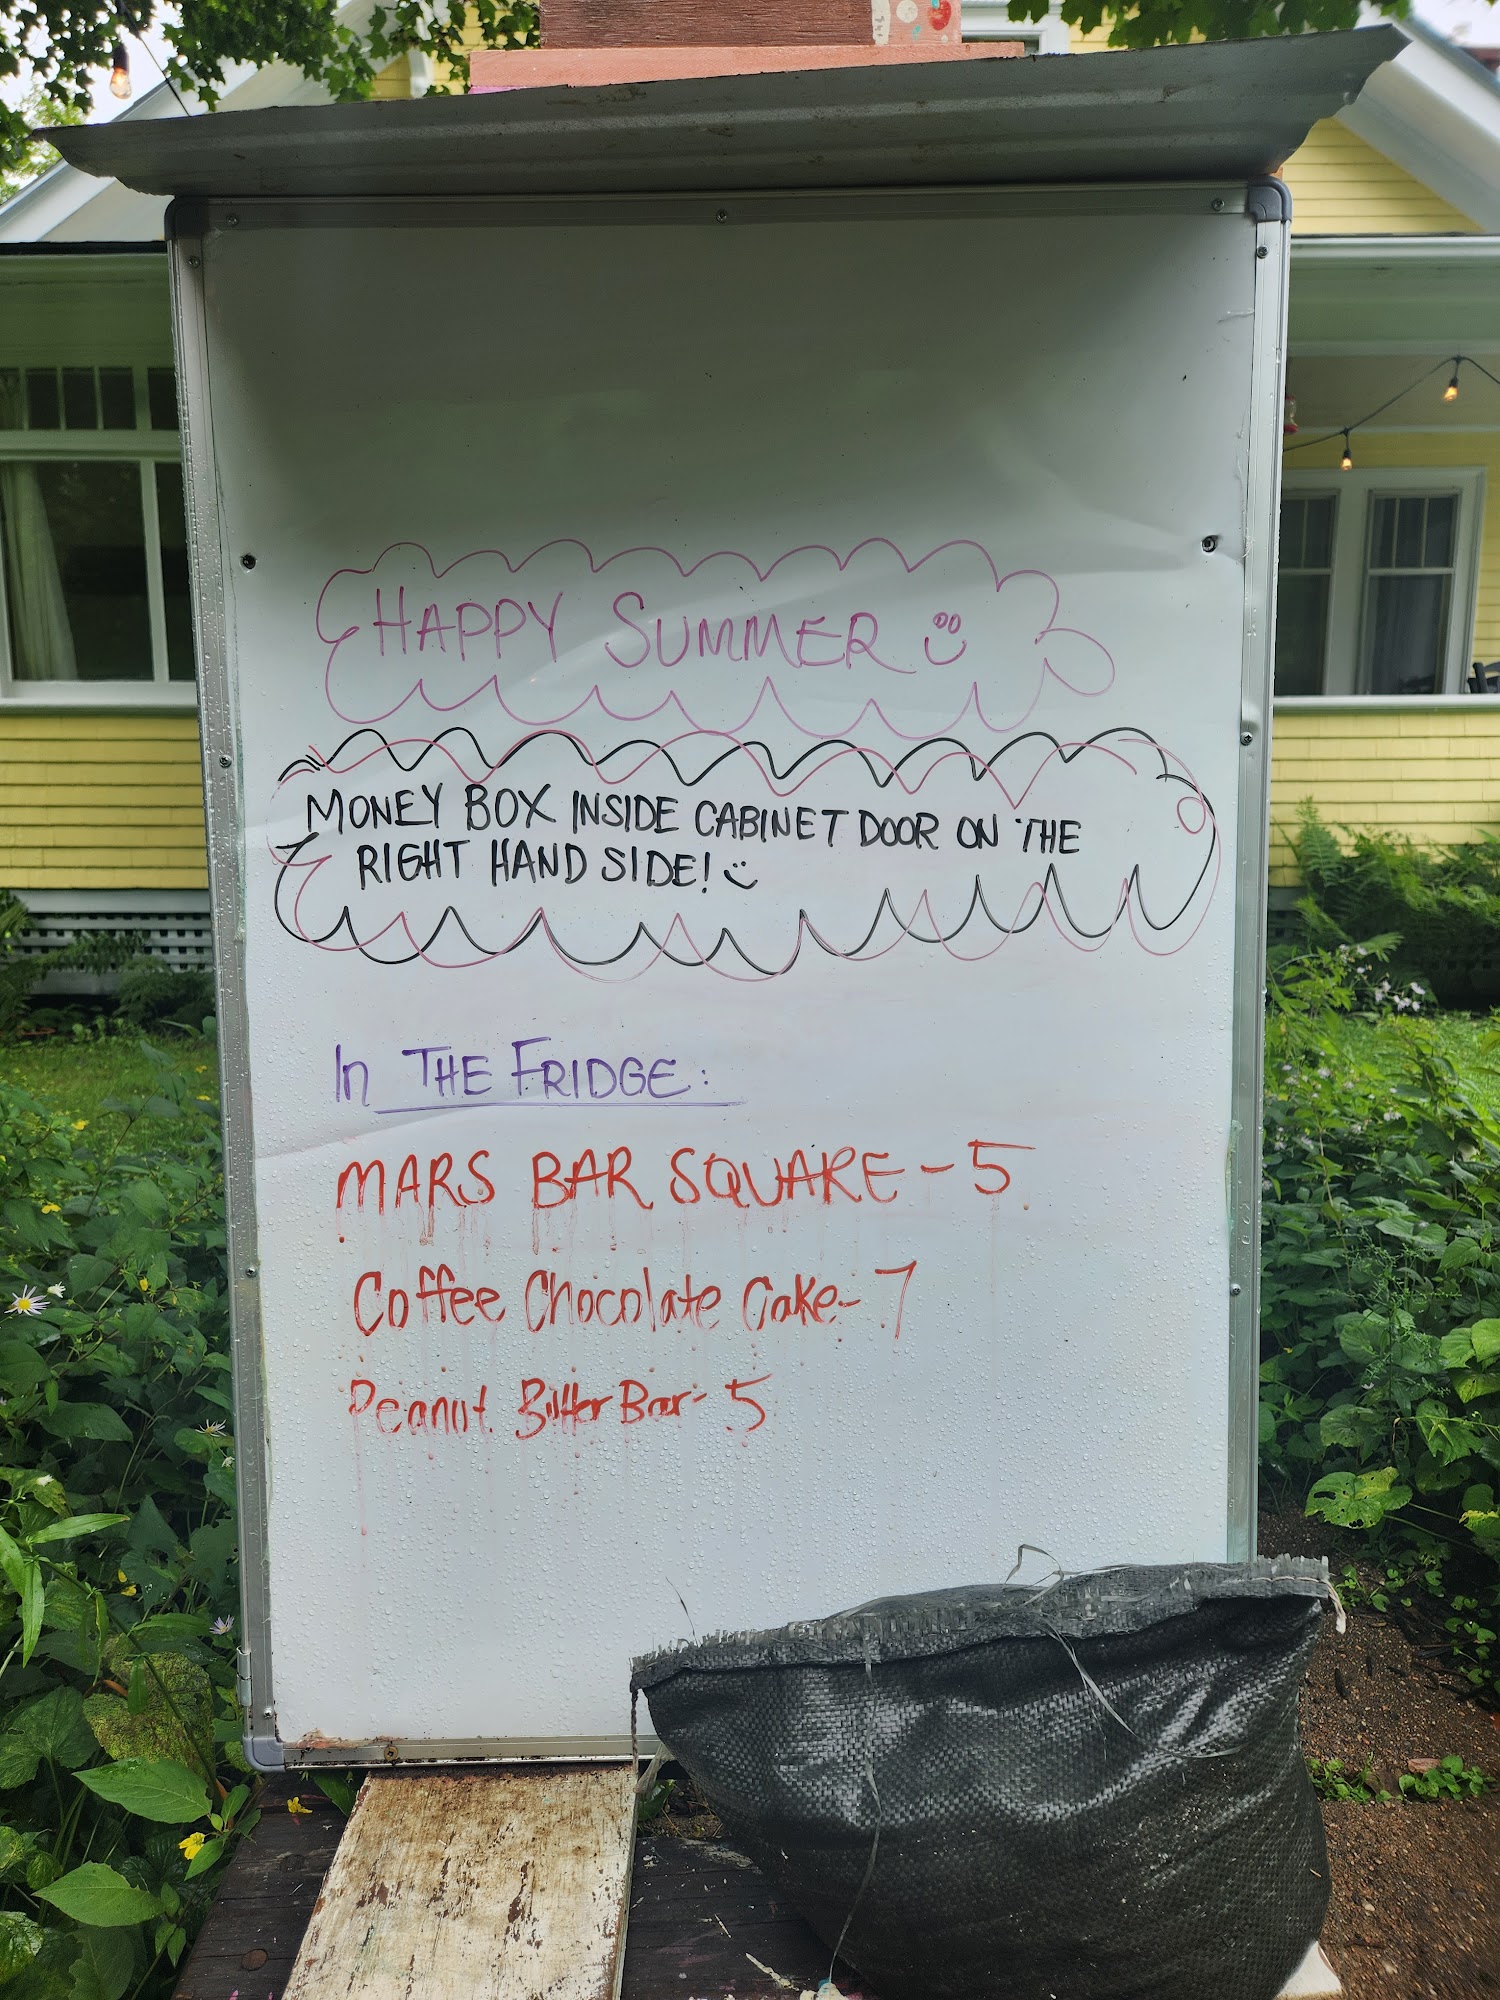 HAPPY SUMMER
MONEY BOX INSIDE CABINET DOOR ON THE
RIGHT HAND SIDE!
In THE FRIDGE:
MARS BAR SQUARE - 5
Coffee Chocolate Cake - 7
Peanut Butter Bar - 5